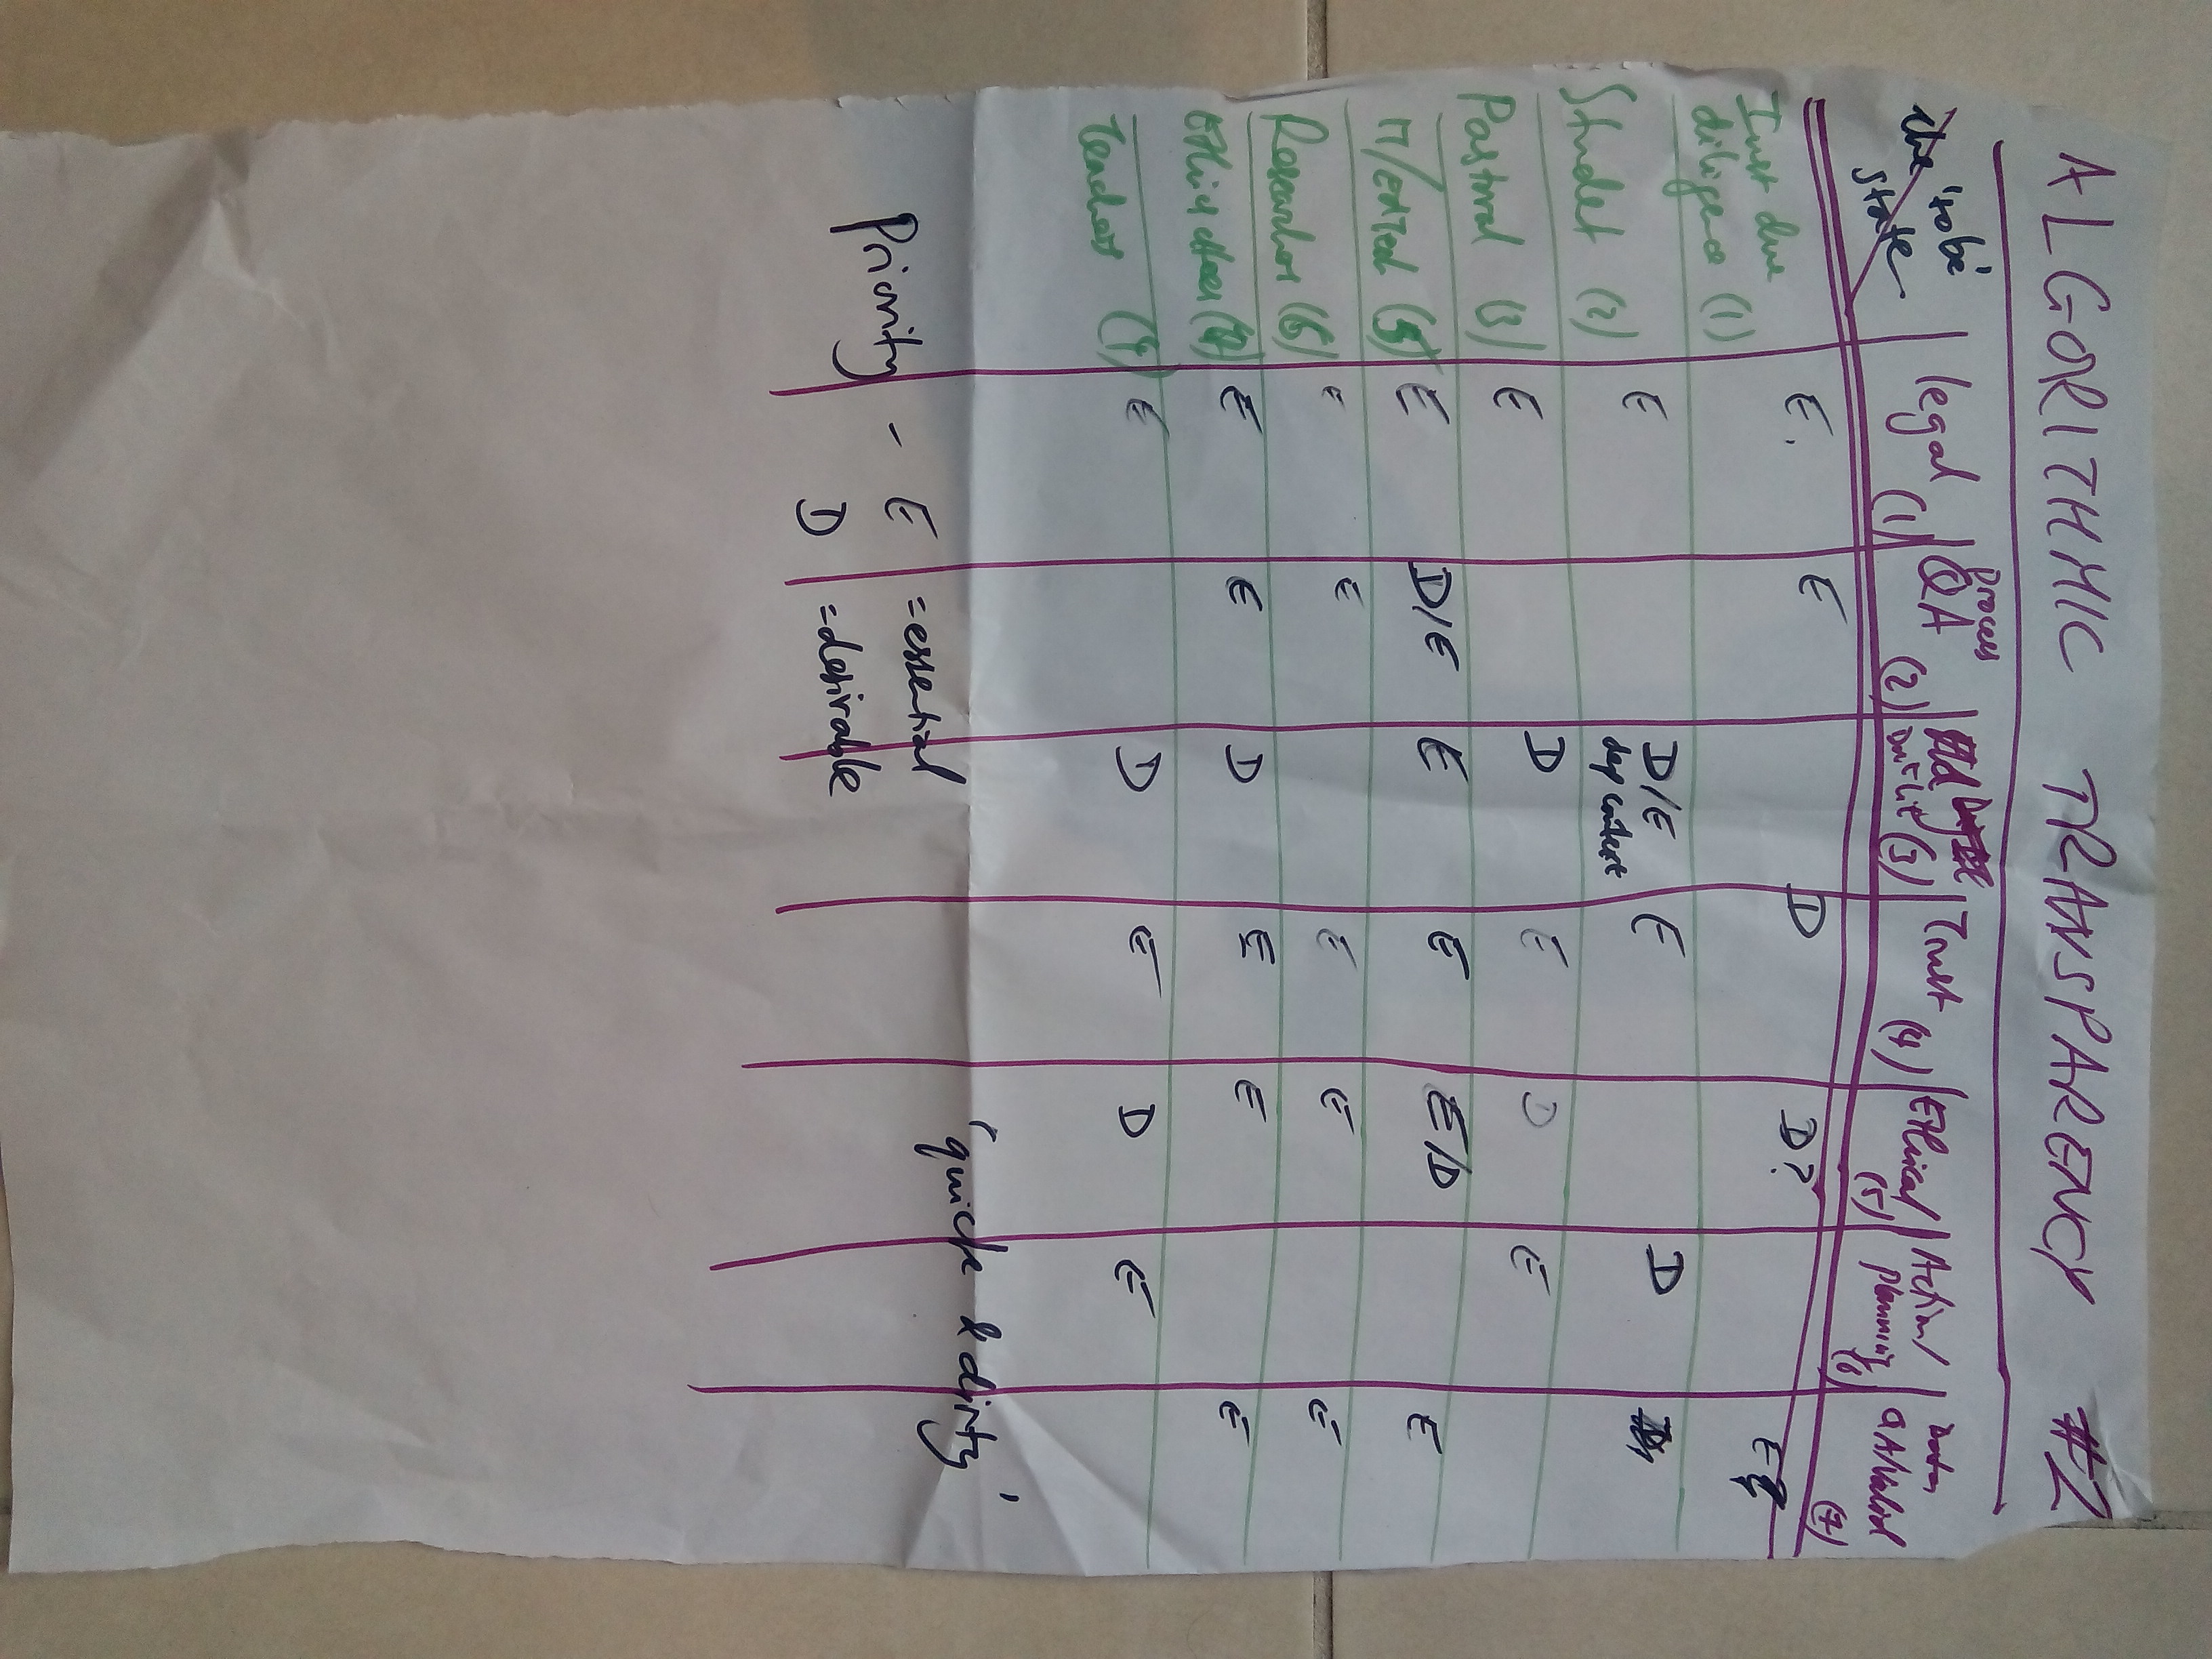 ALGORITHMIC TRANSPARENCY #2
the 'to be' state
legal (1) process QA (2) (3) Trust (4) Ethical (5) Action/planning (6) (7)
Inst due diligence (1) E. E D D? E
Studet (2) E D/E dep context E D
Pastoral (3) E D E D E
IT/EdTech (5) E D/E E E E/D E
Researcher (6) E E E E E
E E D E E E
Teacher (8) E D E D E
Priority - E = essential
D = desirable
'quick & dirty'